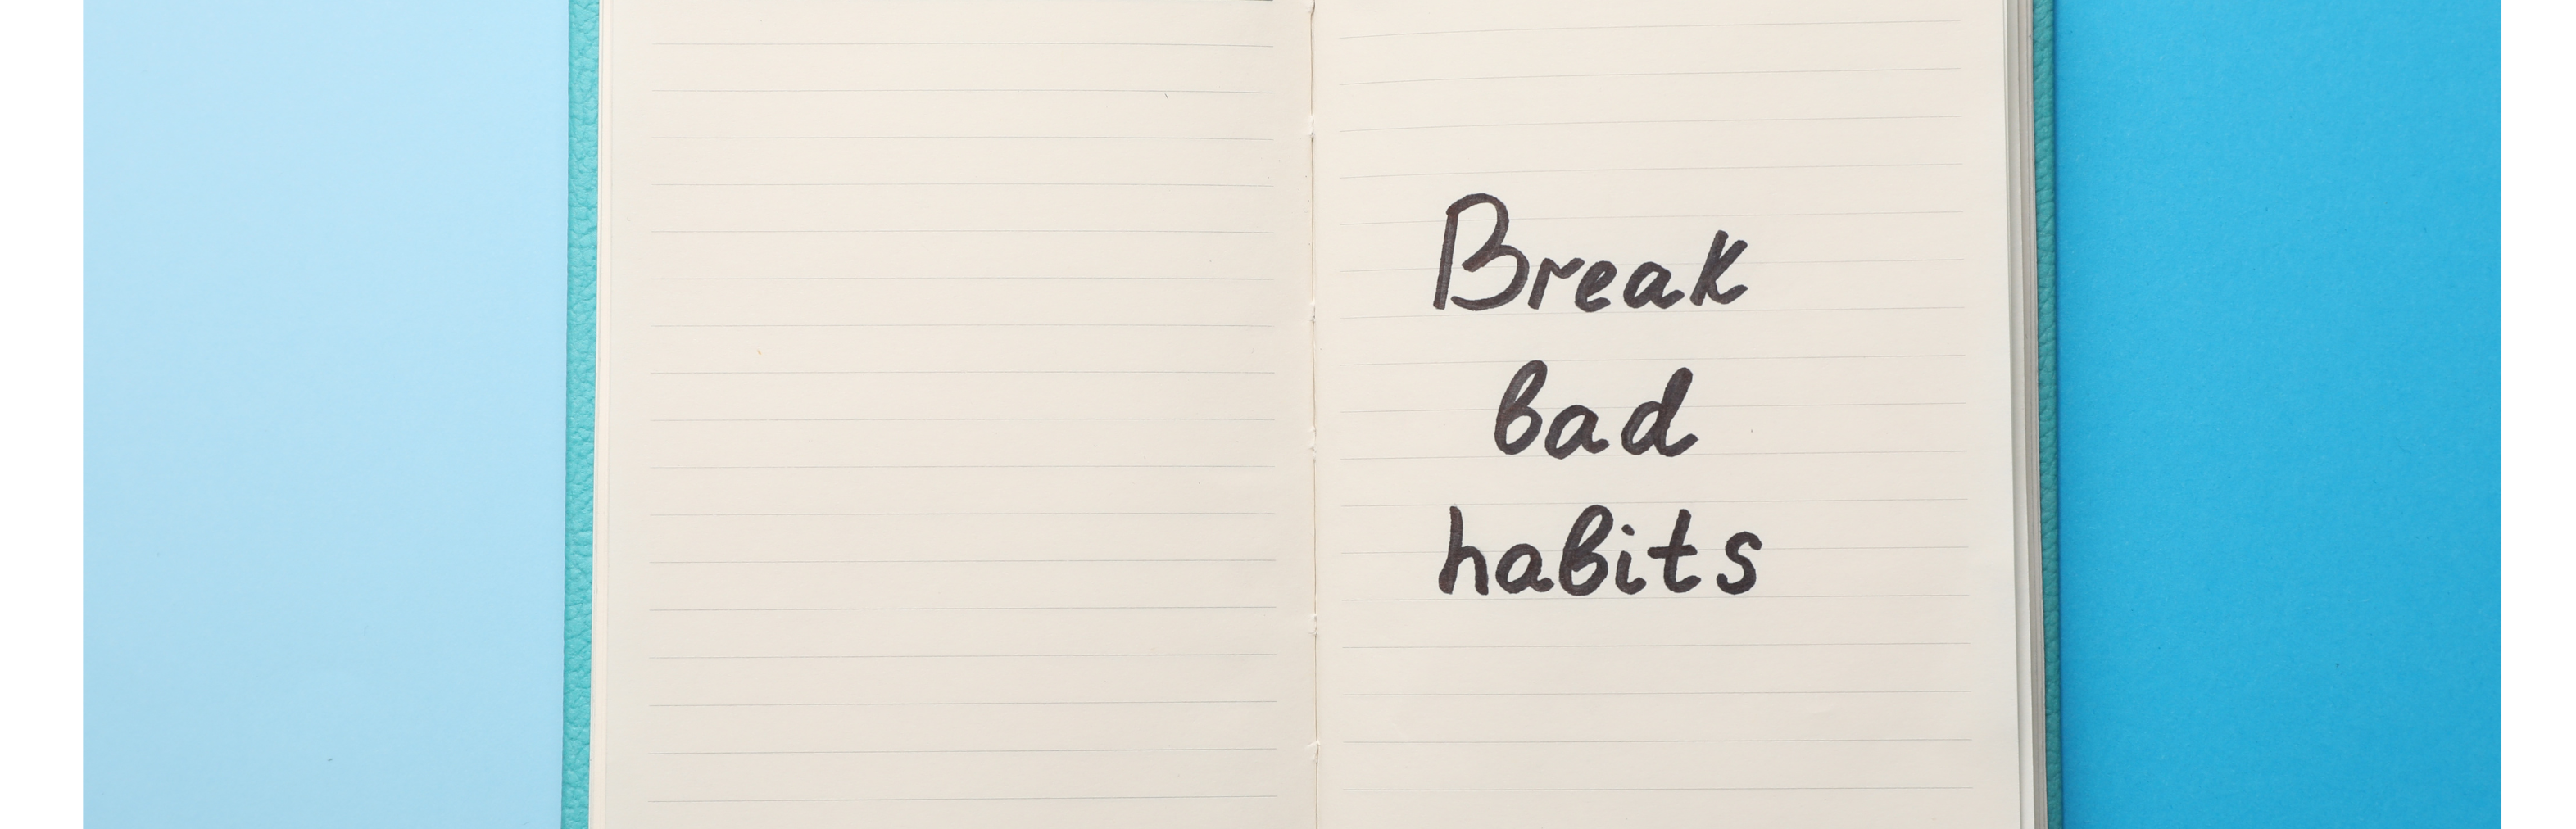 Break
bad
habits